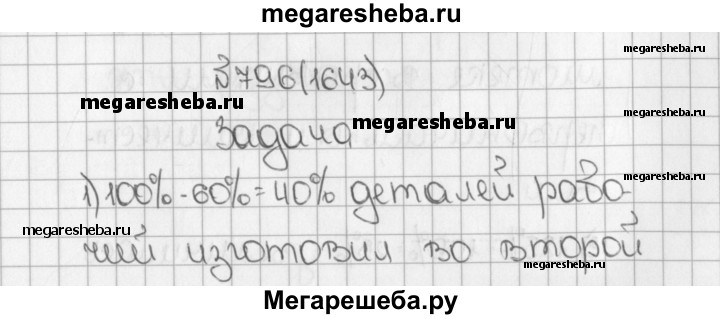 megaresheba.ru
№796(1643)
megaresheba.ru
megaresheba.ru
задача
megaresheba.ru
1) 100% - 60% = 40% деталей рабо-
megaresheba.ru
megaresheba.ru
чий изготовил во второй
megaresheba.ru
Мегарешеба.ру